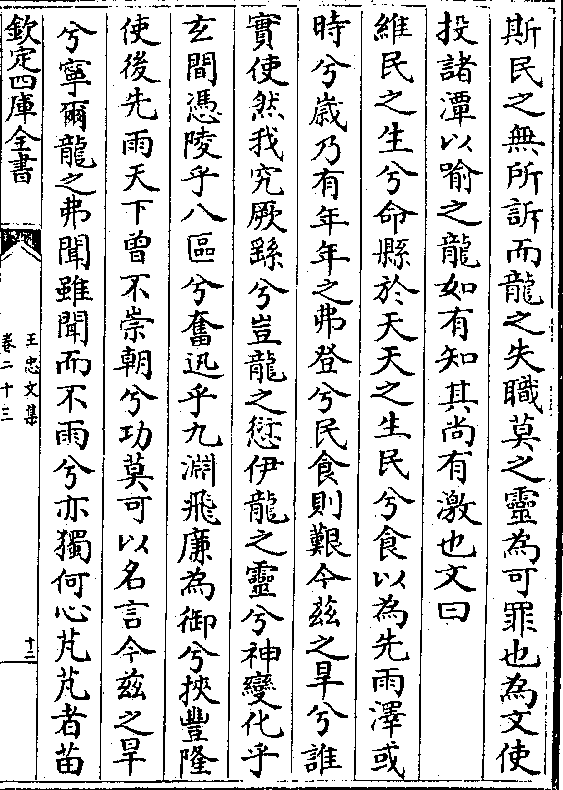 斯民之無所訴而龍之失職莫之靈為可罪也為文使
投諸潭以喻之龍如有知其尚有激也文曰
維民之生兮命縣於天天之生民兮食以為先雨澤或
時兮歲乃有年年之弗登兮民食則艱今兹之旱兮誰
實使然我究厥繇兮豈龍之愆伊龍之靈兮神變化乎
玄間憑陵乎八區兮奮迅乎九淵飛廉為御兮挾豐隆
使後先雨天下曾不崇朝兮功莫可以名言今兹之旱
兮寧爾龍之弗聞雖聞而不雨兮亦獨何心芃芃者苗
欽定四庫全書
王忠文集
卷二十三
十二